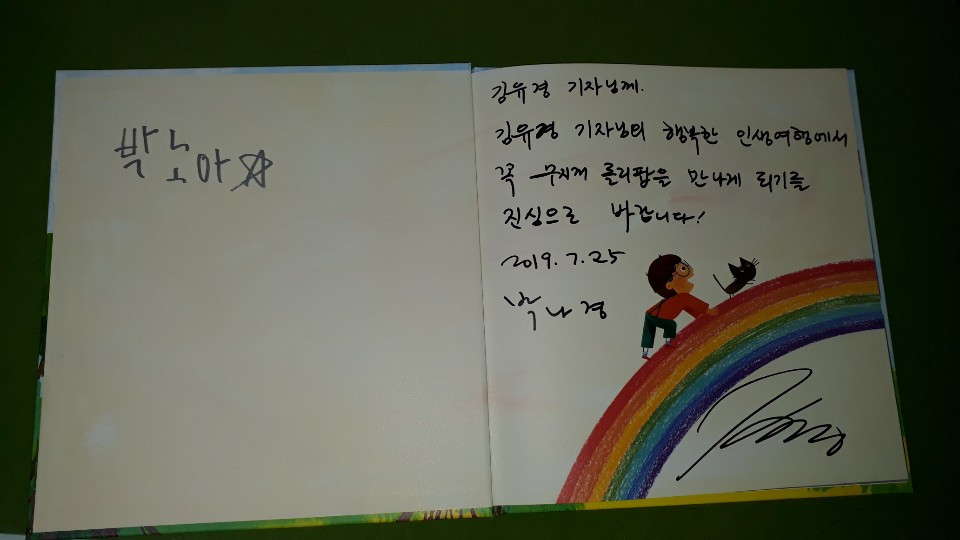 박노아
김유경 기자님께.
김유경 기자님의 행복한 인생여행에서
꼭 무지개 롤리팝을 만나게 되기를
진심으로 바랍니다!
2019.7.25
박나경